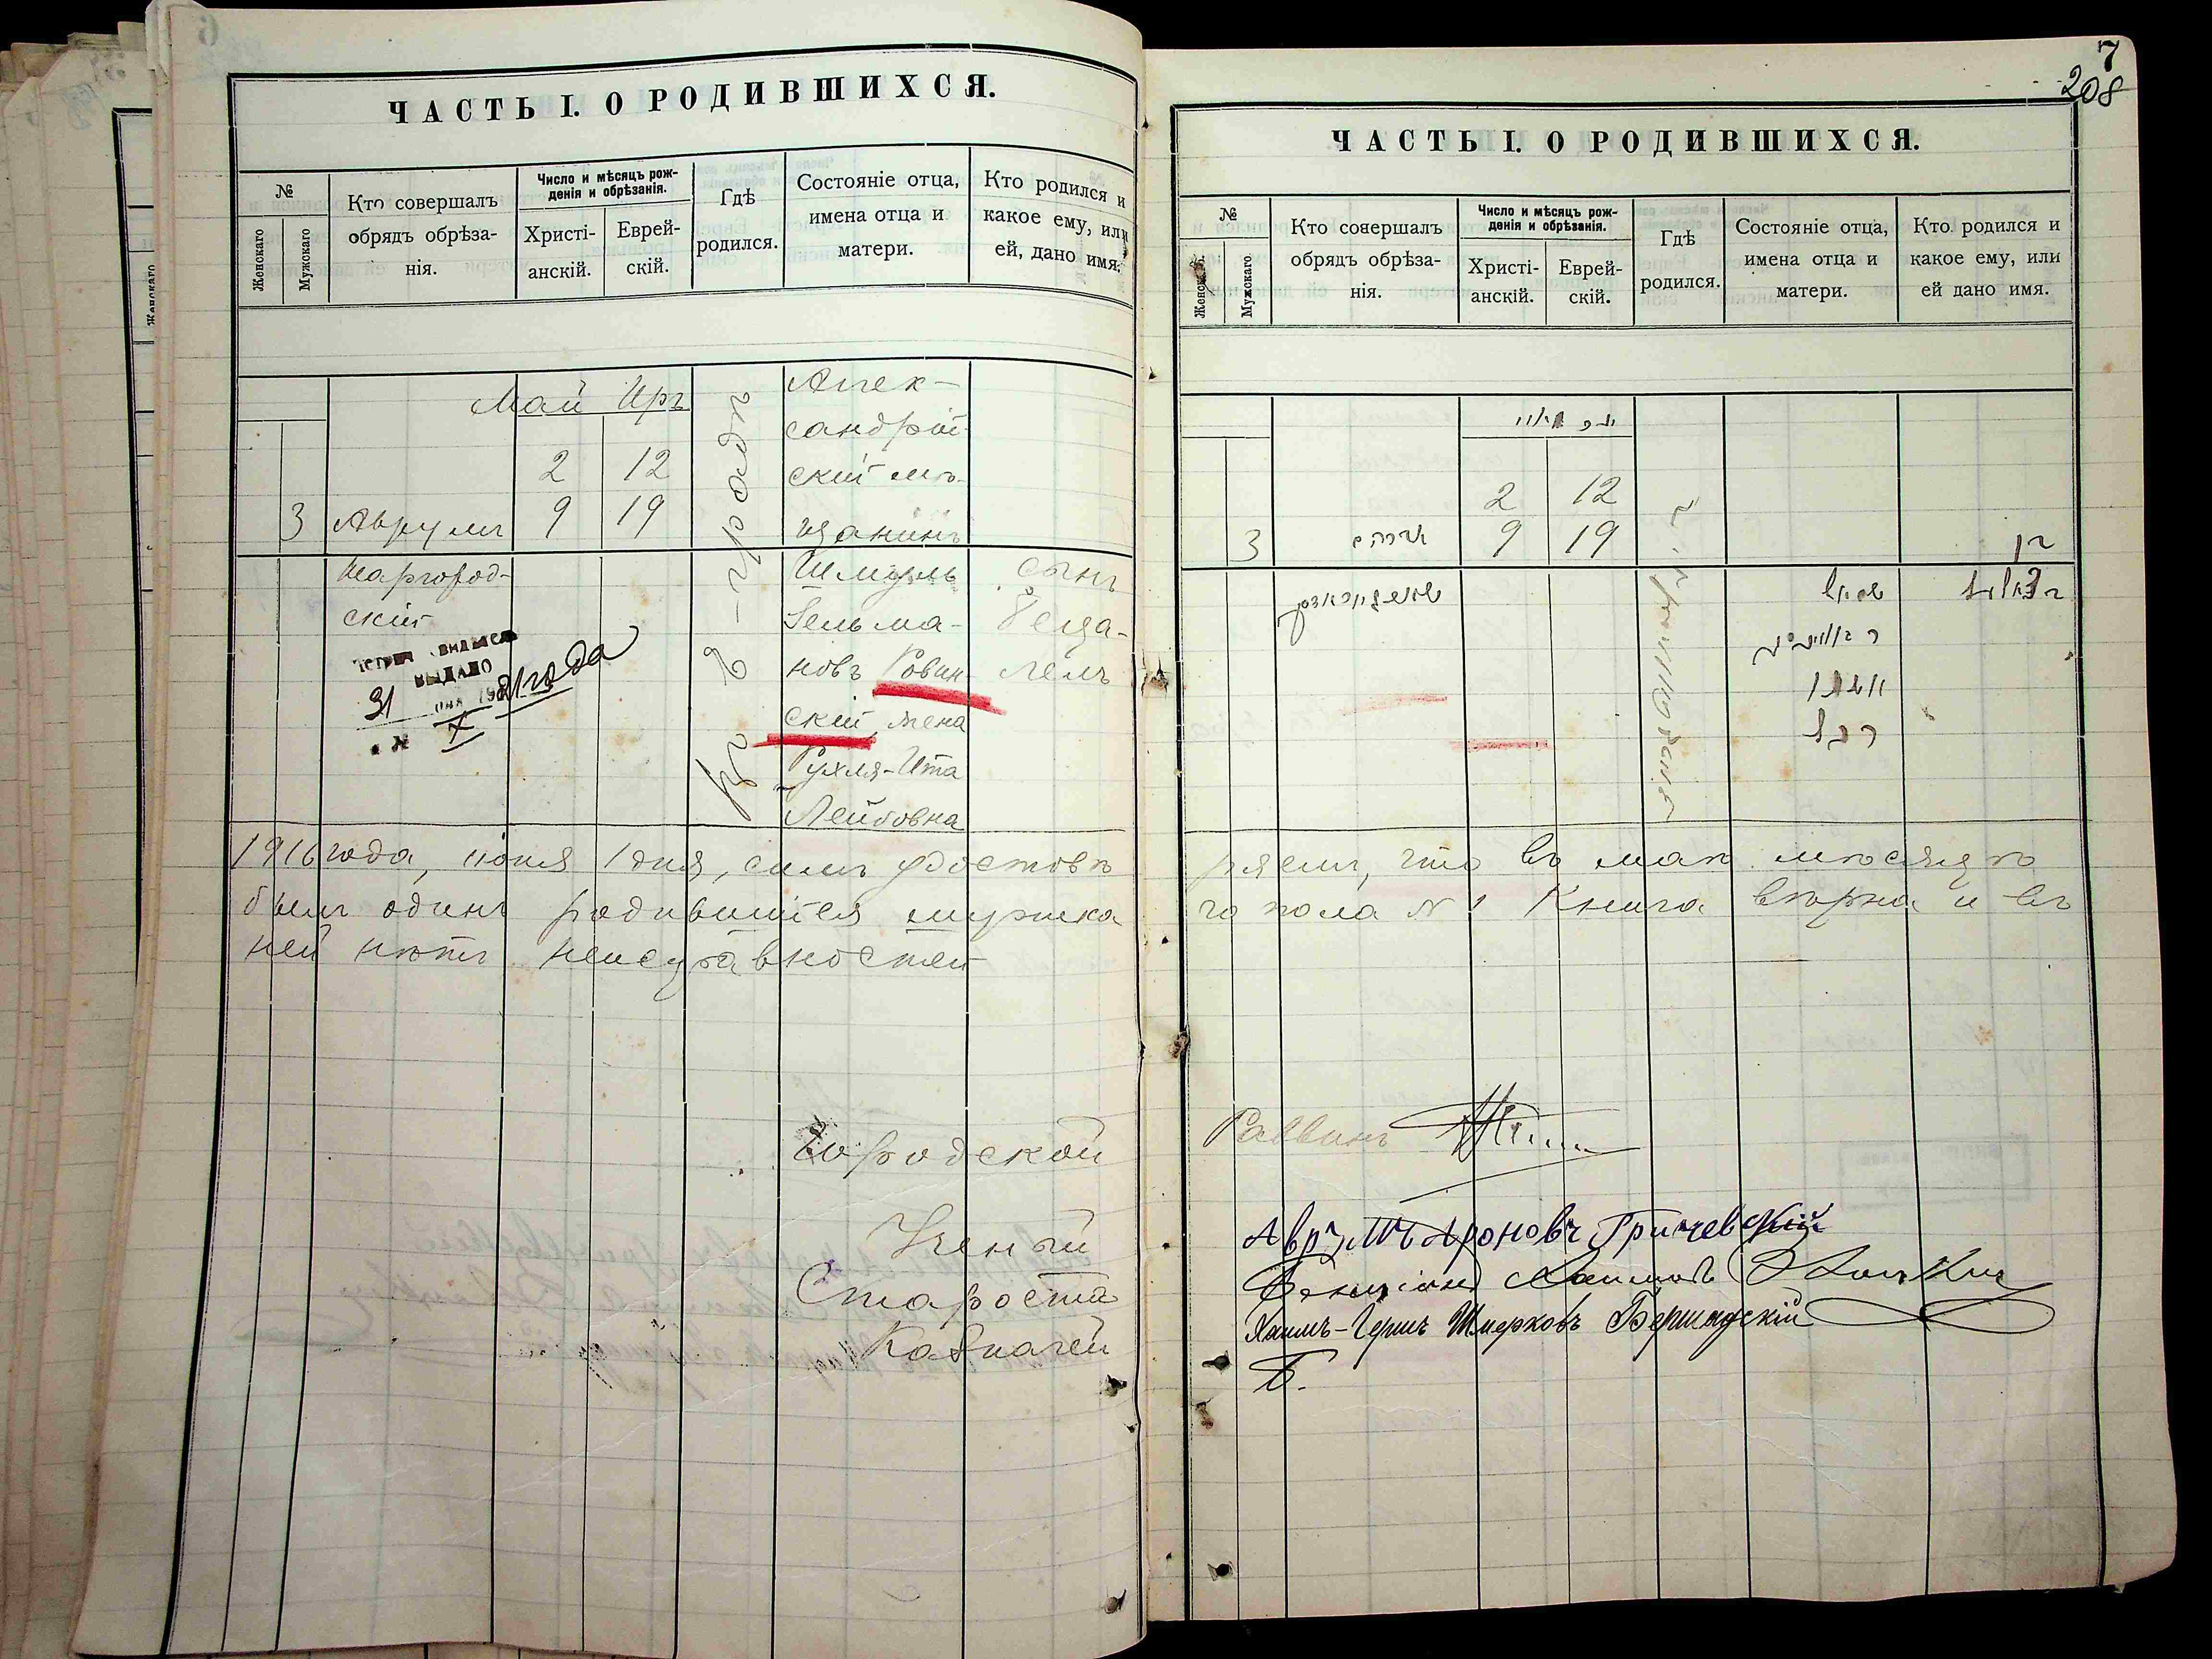 ЧАСТЬ I. О РОДИВШИХСЯ.
№
Женскаго
Мужскаго
Кто совершалъ
обрядъ обрѣза-
нія.
Число и мѣсяцъ рож-
денія и обрѣзанія.
Христі-
анскій.
Еврей-
скій.
Гдѣ
родился.
Состояніе отца,
имена отца и
матери.
Кто родился и
какое ему, или
ей, дано имя.
Май Иръ
2 12
3 Аврумъ 9 19
Шаргород-
скій
ВЫДАНО
31 1921 года
№ X
Алек-
сандрій-
скій мѣ-
щанинъ
Шмуль
Зельма-
новъ Ровин-
скій, жена
Рухля-Ита
Лейбовна
сынъ
Беца-
лель
1916 года, іюня 1 дня, симъ удостовѣ
былъ одинъ родившійся мужска
ней нѣтъ неисправностей
Городской
Ученый
Староста
Казначей
7
208
ЧАСТЬ I. О РОДИВШИХСЯ.
№
Женскаго
Мужскаго
Кто совершалъ
обрядъ обрѣза-
нія.
Число и мѣсяцъ рож-
денія и обрѣзанія.
Христі-
анскій.
Еврей-
скій.
Гдѣ
родился.
Состояніе отца,
имена отца и
матери.
Кто родился и
какое ему, или
ей дано имя.
2 12
3 אברהם 9 19
בן
שמואל
בצלאל
רחל
ряемъ, что въ маѣ мѣсяцѣ
го пола № 1 Книга вѣрна и въ
Раввинъ
Аврумъ Ароновъ Гричевскій
Хаимовъ
Хаимъ-Гершъ Шмерковъ Бершадскій
Б.